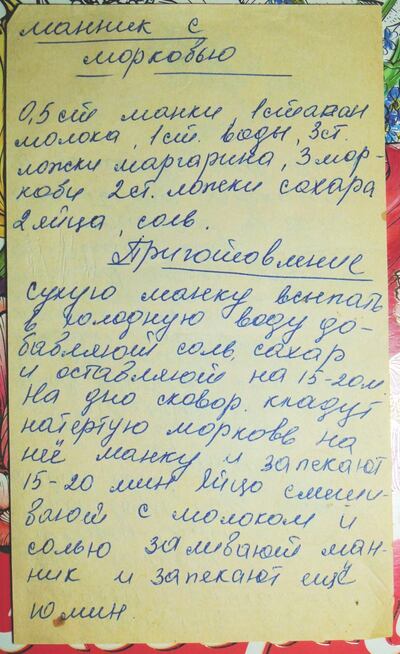 манник с
морковью
0,5 ст манки, 1 стакан
молока, 1 ст. воды, 3 ст.
ложки маргарина, 3 мор-
кови 2 ст. ложки сахара
2 яйца, соль.
Приготовление
сухую манку всыпать
в холодную воду до-
бавляют соль, сахар
и оставляют на 15-20 м
На дно сковор. кладут
натертую морковь на
неё манку и запекают
15-20 мин. Яйцо смеши-
вают с молоком и
солью заливают ман-
ник и запекают ещё
10 мин.